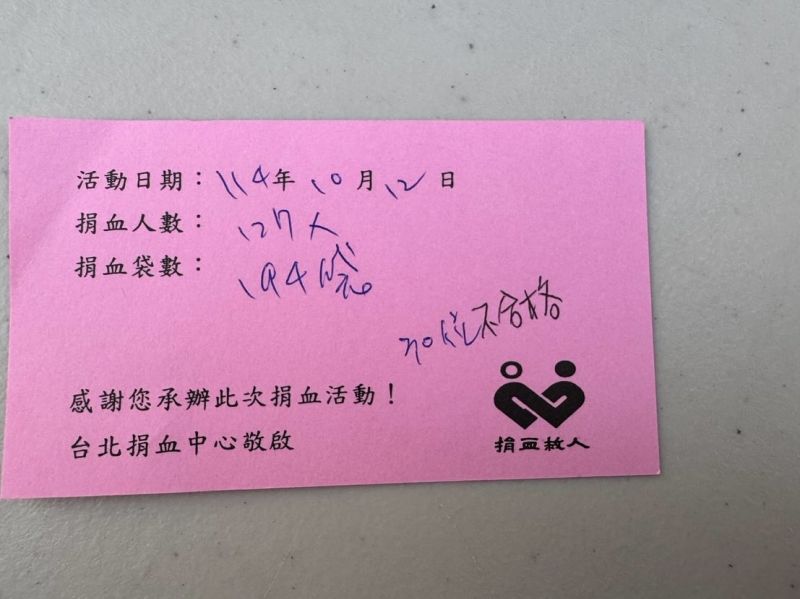 活動日期：114年 10月 12日
捐血人數：127人
捐血袋數：194袋
30位不合格
感謝您承辦此次捐血活動！
台北捐血中心敬啟
捐血救人